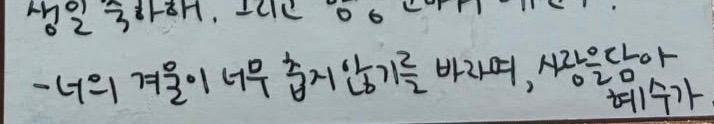 생일 축하해. 그리고
-너의 겨울이 너무 춥지 않기를 바라며, 사랑을담아
혜수가.